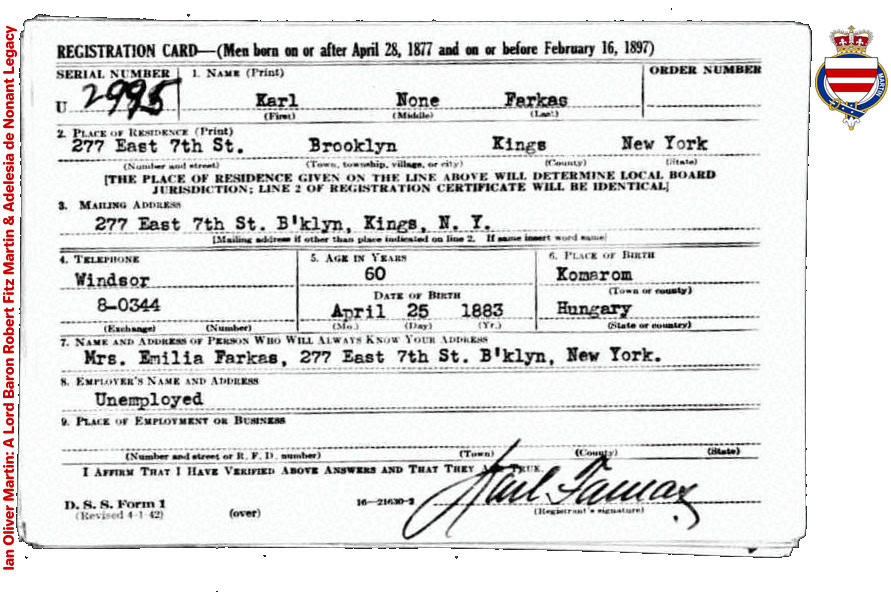 REGISTRATION CARD—(Men born on or after April 28, 1877 and on or before February 16, 1897)
SERIAL NUMBER 1. NAME (Print) ORDER NUMBER
U 2995 Karl None Farkas
(First) (Middle) (Last)
2. PLACE OF RESIDENCE (Print)
277 East 7th St. Brooklyn Kings New York
(Number and street) (Town, township, village, or city) (County) (State)
[THE PLACE OF RESIDENCE GIVEN ON THE LINE ABOVE WILL DETERMINE LOCAL BOARD
JURISDICTION; LINE 2 OF REGISTRATION CERTIFICATE WILL BE IDENTICAL]
3. MAILING ADDRESS
277 East 7th St. B'klyn, Kings, N. Y.
[Mailing address if other than place indicated on line 2. If same insert word same]
4. TELEPHONE 5. AGE IN YEARS 6. PLACE OF BIRTH
Windsor 60 Komarom
(Town or county)
8-0344 DATE OF BIRTH
April 25 1883 Hungary
(Exchange) (Number) (Mo.) (Day) (Yr.) (State or country)
7. NAME AND ADDRESS OF PERSON WHO WILL ALWAYS KNOW YOUR ADDRESS
Mrs. Emilia Farkas, 277 East 7th St. B'klyn, New York.
8. EMPLOYER'S NAME AND ADDRESS
Unemployed
9. PLACE OF EMPLOYMENT OR BUSINESS
(Number and street or R. F. D. number) (Town) (County) (State)
I AFFIRM THAT I HAVE VERIFIED ABOVE ANSWERS AND THAT THEY TRUE.
Karl Farkas
D. S. S. Form 1 16—21630-2 (Registrant's signature)
(Revised 4-1-42) (over)
Ian Oliver Martin: A Lord Baron Robert Fitz Martin & Adelesia de Nonant Legacy